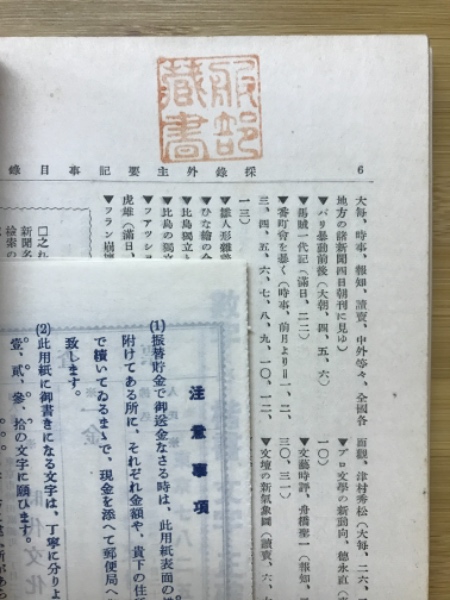 服部
蔵書
6
採録外主要記事目錄
大每、時事、報知、讀賣、中外等々、全國各
地方の諸新聞四日朝刊に見ゆ)
▼パリ暴動前後(大朝、四、五、六)
▼馬賊一代記(滿日、二二)
▼番町會を暴く(時事、前月より=一、二、
三、四、五、六、七、八、九、一〇、一二、
一三)
▼雛人形雜
▼ひな繪の
▼比島獨立
▼比島の獨立
▼フアツシヨ
虎雄(滿日、
▼フラン崩
□之れ
新聞名
檢索の
面觀、津村秀松(大每、二六、
▼プロ文學の新動向、德永直(
一〇)
▼文藝時評、舟橋聖一(報知、
三〇、三一)
▼文壇の新氣象圖(讀賣、六、
注意事項
(1) 振替貯金で御送金なさる時は、此用紙表面の
附けてある所に、それぞれ金額や、貴下の住
で續いてゐるまゝで、現金を添へて郵便局へ
致します。
(2) 此用紙に御書きになる文字は、丁寧に分りよ
壹、貳、參、拾の文字に願ひます。